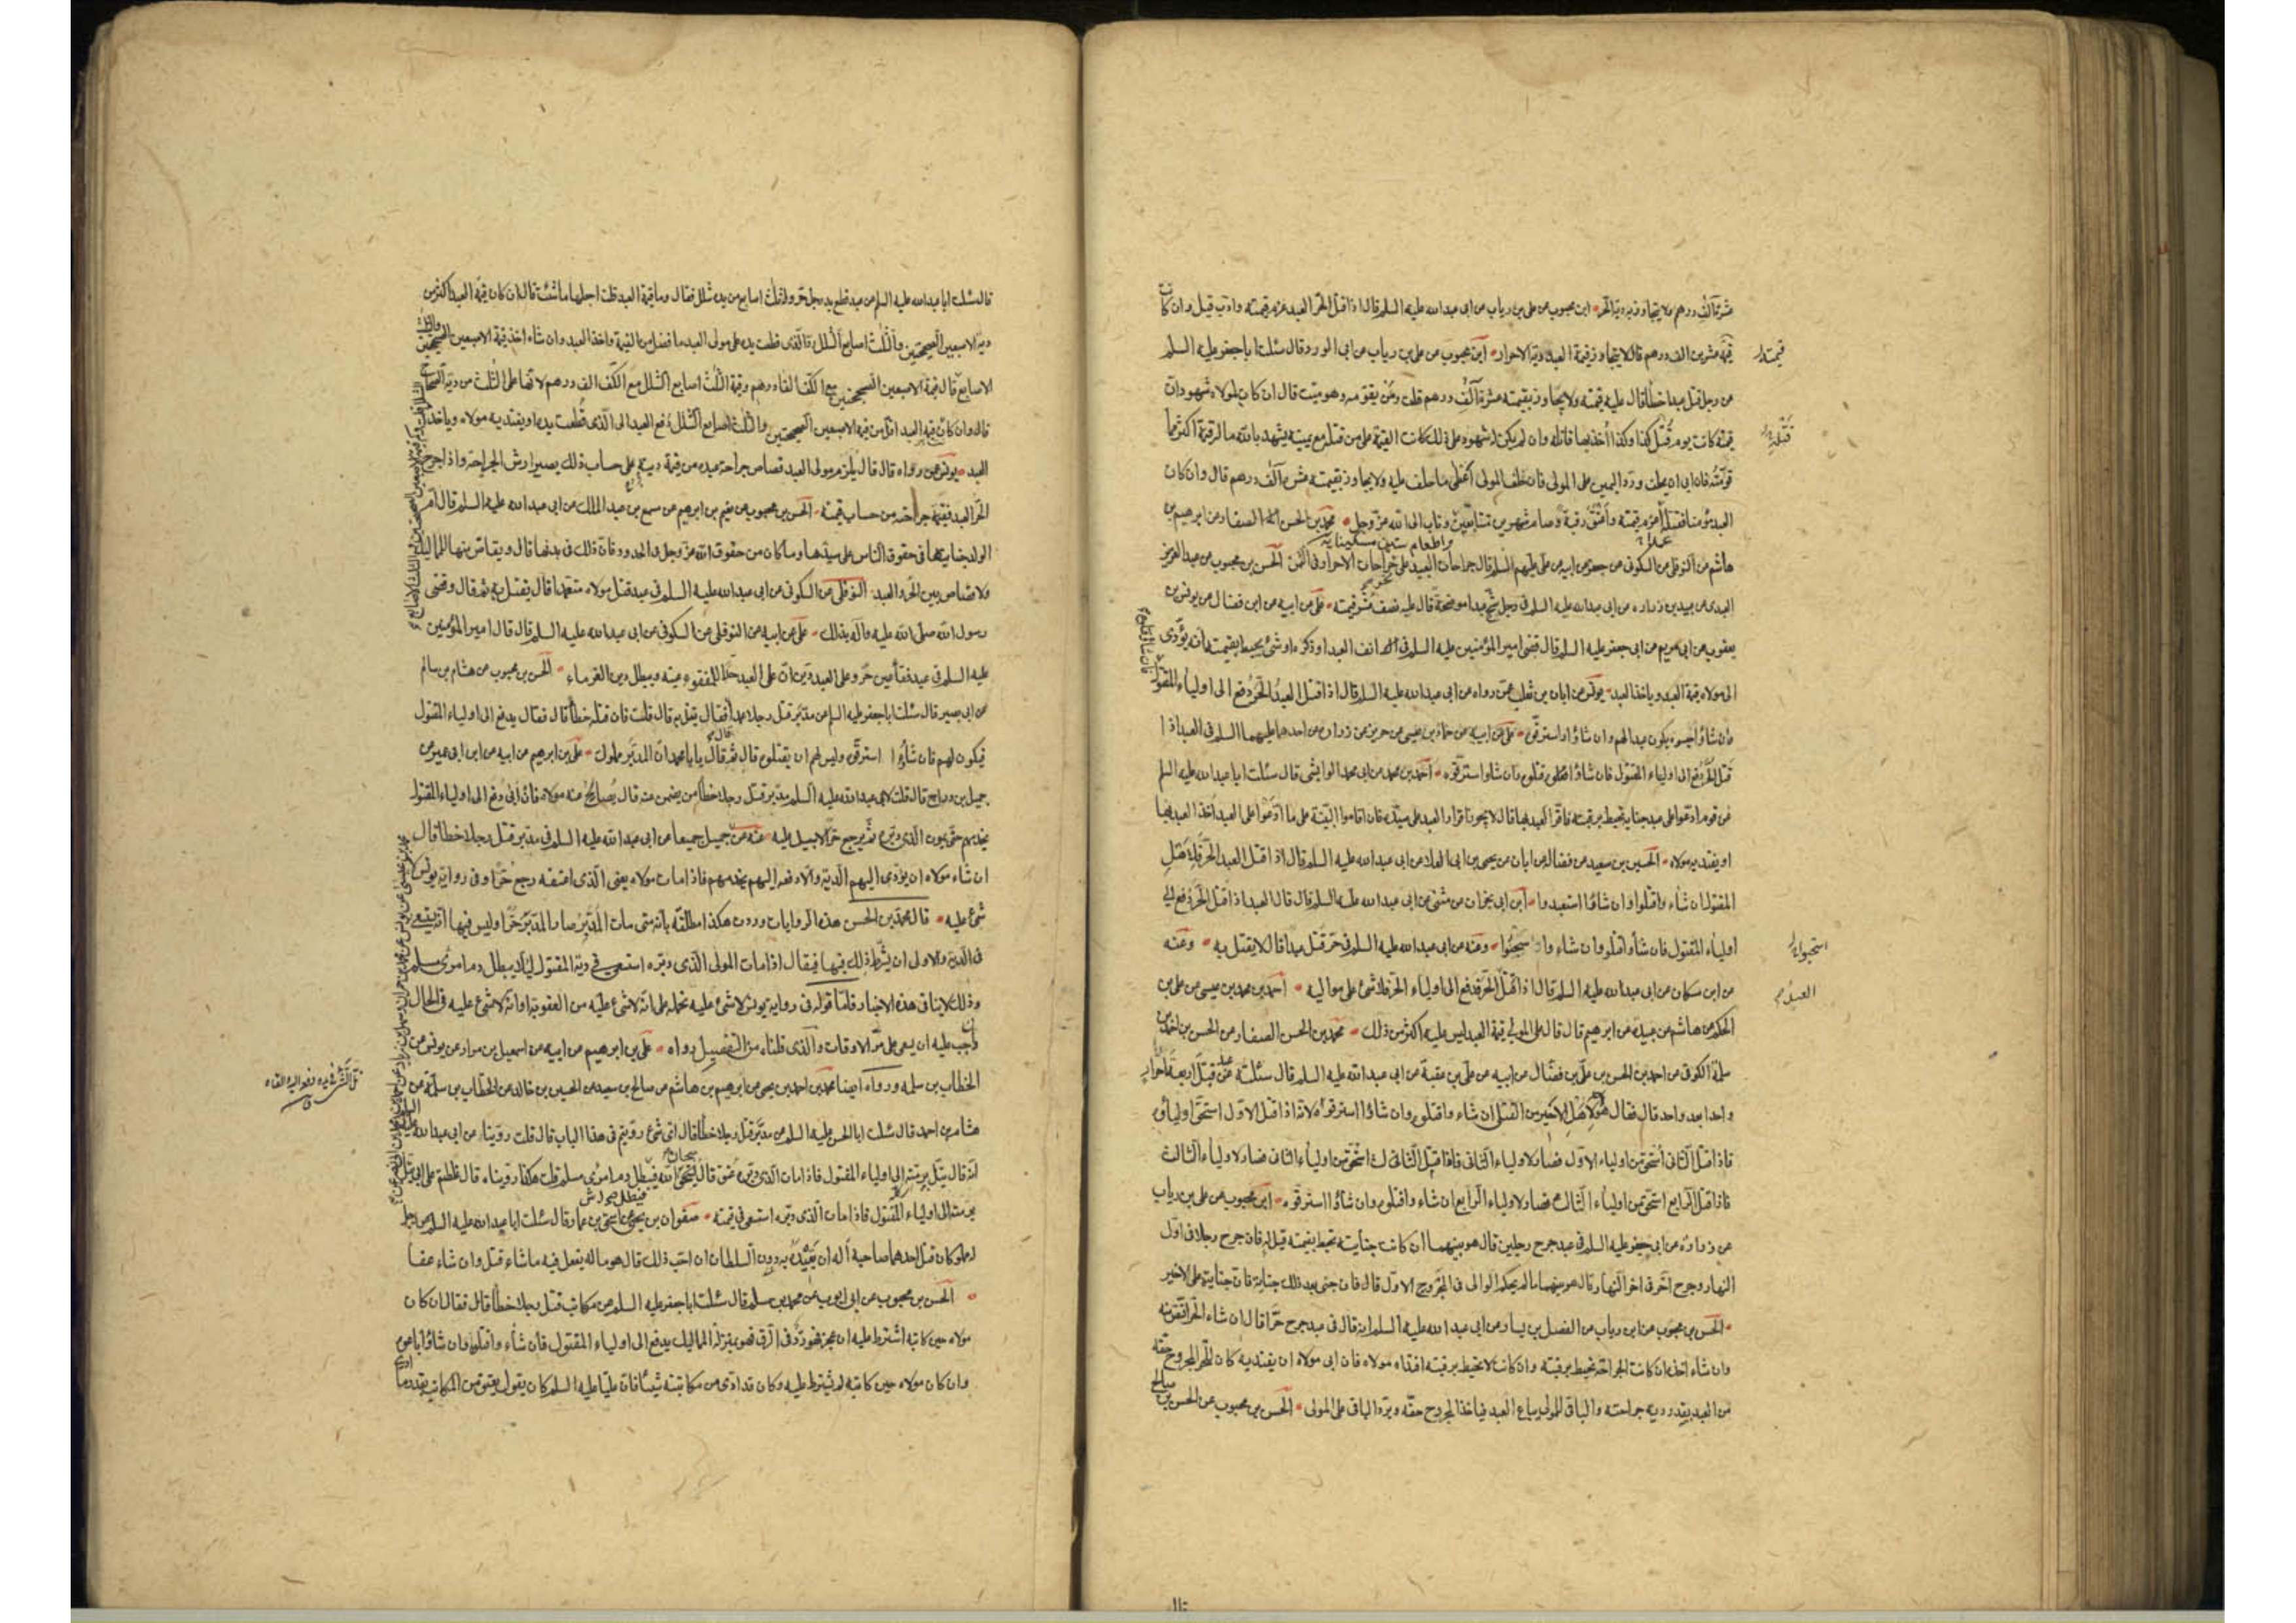 عشرة آلف درهم ولا يتجاوز به دية الحر ابن محبوب عن علي بن رياب عن ابي عبد الله عليه السلم قال اذا قتل الحر العبد غرم قيمته وادب قيل وان كانت
قيمته عشرين الف درهم قال لا يتجاوز قيمة العبد دية الاحرار ابن محبوب عن علي بن رياب عن ابي الورد قال سئلت ابا جعفر عليه السلم
عن رجل قتل عبدا خطأ قال عليه قيمته ولا يجاوز بقيمته عشرة آلف درهم قلت ومن يقومه وهو ميت قال ان كان لمولاه شهود ان
قيمته كانت يوم قتل كذا وكذا أخذ بها قاتله وان لم يكن له شهود على ذلك كانت القيمة على من قتله مع يمينه يشهد بالله ما له قيمة اكثر مما
قومته فان ابى ان يحلف ورد اليمين على المولى فان حلف المولى اعطى ما حلف عليه ولا يجاوز بقيمته عشرة آلف درهم قال وان كان
العبد مؤمنا فقتله عمدا اغرم قيمته واعتق رقبة وصام شهرين متتابعين واطعام ستين مسكينا وتاب الى الله عز وجل محمد بن الحسن الصفار عن ابرهيم بن
هاشم عن النوفلي عن السكوني عن جعفر عن ابيه عن علي عليهم السلم قال جراحات العبيد على نحو جراحات الاحرار في الثمن الحسن بن محبوب عن عبد العزيز
العبدي عن عبيد بن زراره عن ابي عبد الله عليه السلم في رجل شج عبدا موضحة قال عليه نصف عشر قيمته علي عن ابيه عن ابن فضال عن يونس بن
يعقوب عن ابي مريم عن ابي جعفر عليه السلم قال قضى امير المؤمنين عليه السلم في انف العبد او ذكره او شئ يحيط بقيمته انه يؤدى
الى مولاه قيمة العبد وياخذ العبد يونس عن ابان بن تغلب عمن رواه عن ابي عبد الله عليه السلم قال اذا قتل العبد الحر دفع الى اولياء المقتول
فان شاؤا قتلوه
وان شاؤا حبسوه يكون عبدا لهم وان شاؤا استرق علي عن ابيه عن حماد بن عيسى عن حريز عن زراره عن احدهما عليهما السلم في العبد اذا
قتل الحر دفع الى اولياء المقتول فان شاؤا قتلوه وان شاؤا استرقوه احمد بن محمد عن ابي محمد الوابشي قال سئلت ابا عبد الله عليه السلم
عن قوم ادعوا على عبد جناية تحيط برقبته فاقر العبد بها قال لا يجوز اقرار العبد على سيده فان اقاموا البينة على ما ادعوا على العبد أخذ العبد بها
او يفتديه مولاه الحسين بن سعيد عن فضاله عن ابان عن يحيى بن ابي العلا عن ابي عبد الله عليه السلم قال اذا قتل العبد الحر فلاهل
المقتول ان شاء واقتلوا وان شاؤا استعبدوا ابن ابي نجران عن مثنى عن ابي عبد الله عليه السلم قال قال العبد اذا قتل الحر دفع الى
اولياء المقتول فان شاؤا قتلوه وان شاءوا استحيوا وعنه عن ابي عبد الله عليه السلم في حر قتل عبدا قال لا يقتل به وعنه
عن ابن مسكان عن ابي عبد الله عليه السلم قال اذا قتل الحر فدفع الى اولياء الحر فلا شئ على مواليه احمد بن محمد بن عيسى عن علي بن
الحكم عن هاشم بن عبيده عن ابرهيم قال قال على المولى قيمة العبد ليس عليه اكثر من ذلك محمد بن الحسن الصفار عن الحسن بن احمد بن
سلمة الكوفي عن احمد بن الحسن بن علي بن فضال عن ابيه عن علي بن عقبة عن ابي عبد الله عليه السلم قال سئلته عن عبد قتل اربعة احرار
واحدا بعد واحد قال فقال هو لاهل الاخير من القتلى ان شاء واقتلوه وان شاؤا استرقوه لانه اذا قتل الاول استحق اولياؤه
فاذا قتل الثاني استحق من اولياء الاول فصار لاولياء الثاني فاذا قتل الثالث استحق من اولياء الثاني فصار لاولياء الثالث
فاذا قتل الرابع استحق من اولياء الثالث فصار لاولياء الرابع ان شاء واقتلوه وان شاؤا استرقوه ابن محبوب عن علي بن رياب
عن زراره عن ابي جعفر عليه السلم في عبد جرح رجلين قال هو بينهما ان كانت جنايته تحيط بقيمته قيل له فان جرح رجلا في اول
النهار وجرح آخر في اخر النهار قال هو بينهما ما لم يحكم الوالي في المجروح الاول قال فان جنى بعد ذلك جناية فان جنايته على الاخير
الحسن بن محبوب عن ابن رياب عن الفضل بن يسار عن ابي عبد الله عليه السلم انه قال في عبد جرح حرا قال ان شاء الحر اقتص منه
وان شاء اخذه ان كانت الجراحة تحيط برقبته وان كانت لا تحيط برقبته افتداه مولاه فان ابى مولاه ان يفتديه كان للحر المجروح حقه
من العبد بقدر دية جراحته والباقي للمولى يباع العبد فياخذ المجروح حقه ويرد الباقي على المولى الحسن بن محبوب عن الحسن بن صالح
قيمته
قتله
استحيوا
العبد
قال
قال سئلت ابا عبد الله عليه السلم عن عبد قطع يد رجل حر وله ثلث اصابع من يده شلل فقال وما قيمة العبد قلت اجعلها ما شئت قال ان كان قيمة العبد اكثر من
دية الاصبعين الصحيحتين والثلث اصابع الشلل فالذي قطعت يده على مولى العبد ما فضل من القيمة واخذ العبد وان شاء اخذ قيمة الاصبعين الصحيحتين والثلث
الاصابع قال قيمة الاصبعين الصحيحتين مع الكف الفا درهم وقيمة الثلث اصابع الشلل مع الكف الف درهم لانها على الثلث من دية الصحاح
قال وان كان قيمة العبد اقل من قيمة الاصبعين الصحيحتين والثلث اصابع الشلل دفع العبد الى الذي قطعت يده او يفتديه مولاه وياخذ
العبد يونس عمن رواه قال قال يلزم مولى العبد قصاص جراحة عبده من قيمة ديته على حساب ذلك يصير ارش الجراحة واذا جرح
الحر العبد فقيمة جراحته من حساب قيمته الحسن بن محبوب عن نعيم بن ابرهيم عن مسمع بن عبد الملك عن ابي عبد الله عليه السلم قال ام
الولد جنايتها في حقوق الناس على سيدها وما كان من حقوق الله عز وجل في الحدود فان ذلك في بدنها قال ويقاص منها للمماليك
ولا قصاص بين الحر والعبد النوفلي عن السكوني عن ابي عبد الله عليه السلم في عبد قتل مولاه متعمدا قال يقتل به ثم قال وقضى
رسول الله صلى الله عليه وآله بذلك علي عن ابيه عن النوفلي عن السكوني عن ابي عبد الله عليه السلم قال قال امير المؤمنين
عليه السلم في عبد فقأ عين حر وعلى العبد دين ان على العبد حدا للمفقوء عينه ويبطل دين الغرماء الحسن بن محبوب عن هشام بن سالم
عن ابي بصير قال سئلت ابا جعفر عليه السلم عن مدبر قتل رجلا عمدا فقال يقتل به قال قلت فان قتله خطأ قال فقال يدفع الى اولياء المقتول
فيكون لهم فان شاؤا استرق وليس لهم ان يقتلوه قال ثم قال يا با محمد ان المدبر مملوك علي بن ابرهيم عن ابيه عن ابن ابي عمير عن
جميل بن دراج قال قلت لابي عبد الله عليه السلم مدبر قتل رجلا خطأ من يضمن عنه قال يصالح عنه مولاه فان ابى دفع الى اولياء المقتول
يخدمهم حتى يموت الذي دبره ثم يرجع حرا لا سبيل عليه عنه عن جميل جميعا عن ابي عبد الله عليه السلم في مدبر قتل رجلا خطأ قال
ان شاء مولاه ان يؤدى اليهم الدية والا دفعه اليهم يخدمهم فاذا مات مولاه يعني الذي اعتقه رجع حرا وفي رواية يونس لا
شئ عليه قال محمد بن الحسن هذه الروايات وردت هكذا مطلقه بانه متى مات المدبر صار المدبر حرا وليس فيها انه يستسعى
في الدية والاولى ان يشرط ذلك فيها فيقال اذا مات المولى الذي دبره استسعى في دية المقتول لئلا يبطل دم امرئ مسلم
وذلك لا ينافي هذه الاخبار فاما قوله في رواية يونس لا شئ عليه نحمله على انه لا شئ عليه من العقوبة او انه لا شئ عليه في الحال
واجب عليه ان يسعى على مر الاوقات والذي قلناه من التفصيل رواه علي بن ابرهيم عن ابيه عن اسمعيل بن مرار عن يونس عن
الخطاب بن سلمه ورواه ايضا محمد بن احمد بن يحيى عن ابرهيم بن هاشم عن صالح بن سعيد عن الحسين بن خالد عن الخطاب بن سلمة عن
هشام بن احمد قال سئلت ابا الحسن عليه السلم عن مدبر قتل رجلا خطأ قال اي شئ رويتم في هذا الباب قال قلت روينا عن ابي عبد الله عليه السلم
انه قال يتل برمته الى اولياء المقتول فاذا مات الذي دبره عتق قال سبحان الله فيبطل دم امرئ مسلم قلت هكذا روينا قال غلطتم على ابي يتل
برمته الى اولياء المقتول فاذا مات الذي دبره استسعى في قيمته صفوان بن يحيى عن اسحق بن عمار قال سئلت ابا عبد الله عليه السلم عن رجل
له مملوكان قتل احدهما صاحبه أله ان يقيده به دون السلطان ان احب ذلك قال هو ماله يفعل فيه ما شاء قتل وان شاء عفا
الحسن بن محبوب عن ابي ايوب عن محمد بن مسلم قال سئلت ابا جعفر عليه السلم عن مكاتب قتل رجلا خطأ قال فقال ان كان
مولاه حين كاتبه اشترط عليه ان عجز فهو رد في الرق فهو بمنزلة المماليك يدفع الى اولياء المقتول فان شاء واقتلوه وان شاؤا باعوه
وان كان مولاه حين كاتبه لم يشترط عليه وكان قد ادى من مكاتبته شيئا فان عليا عليه السلم كان يقول يعتق من المكاتب بقدر ما ادى